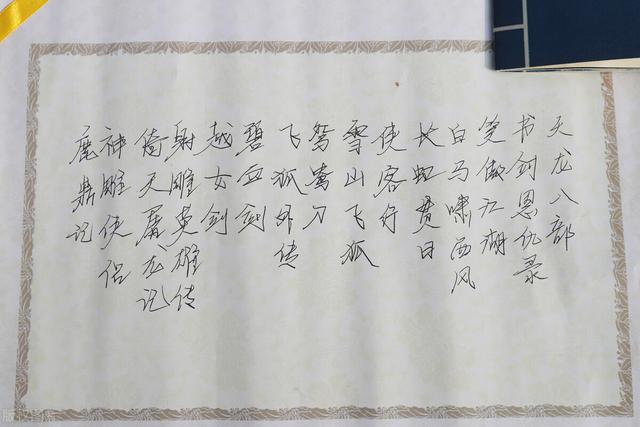 天龙八部
书剑恩仇录
笑傲江湖
白马啸西风
长虹贯日
侠客行
雪山飞狐
鸳鸯刀
飞狐外传
碧血剑
越女剑
射雕英雄传
倚天屠龙记
神雕侠侣
鹿鼎记